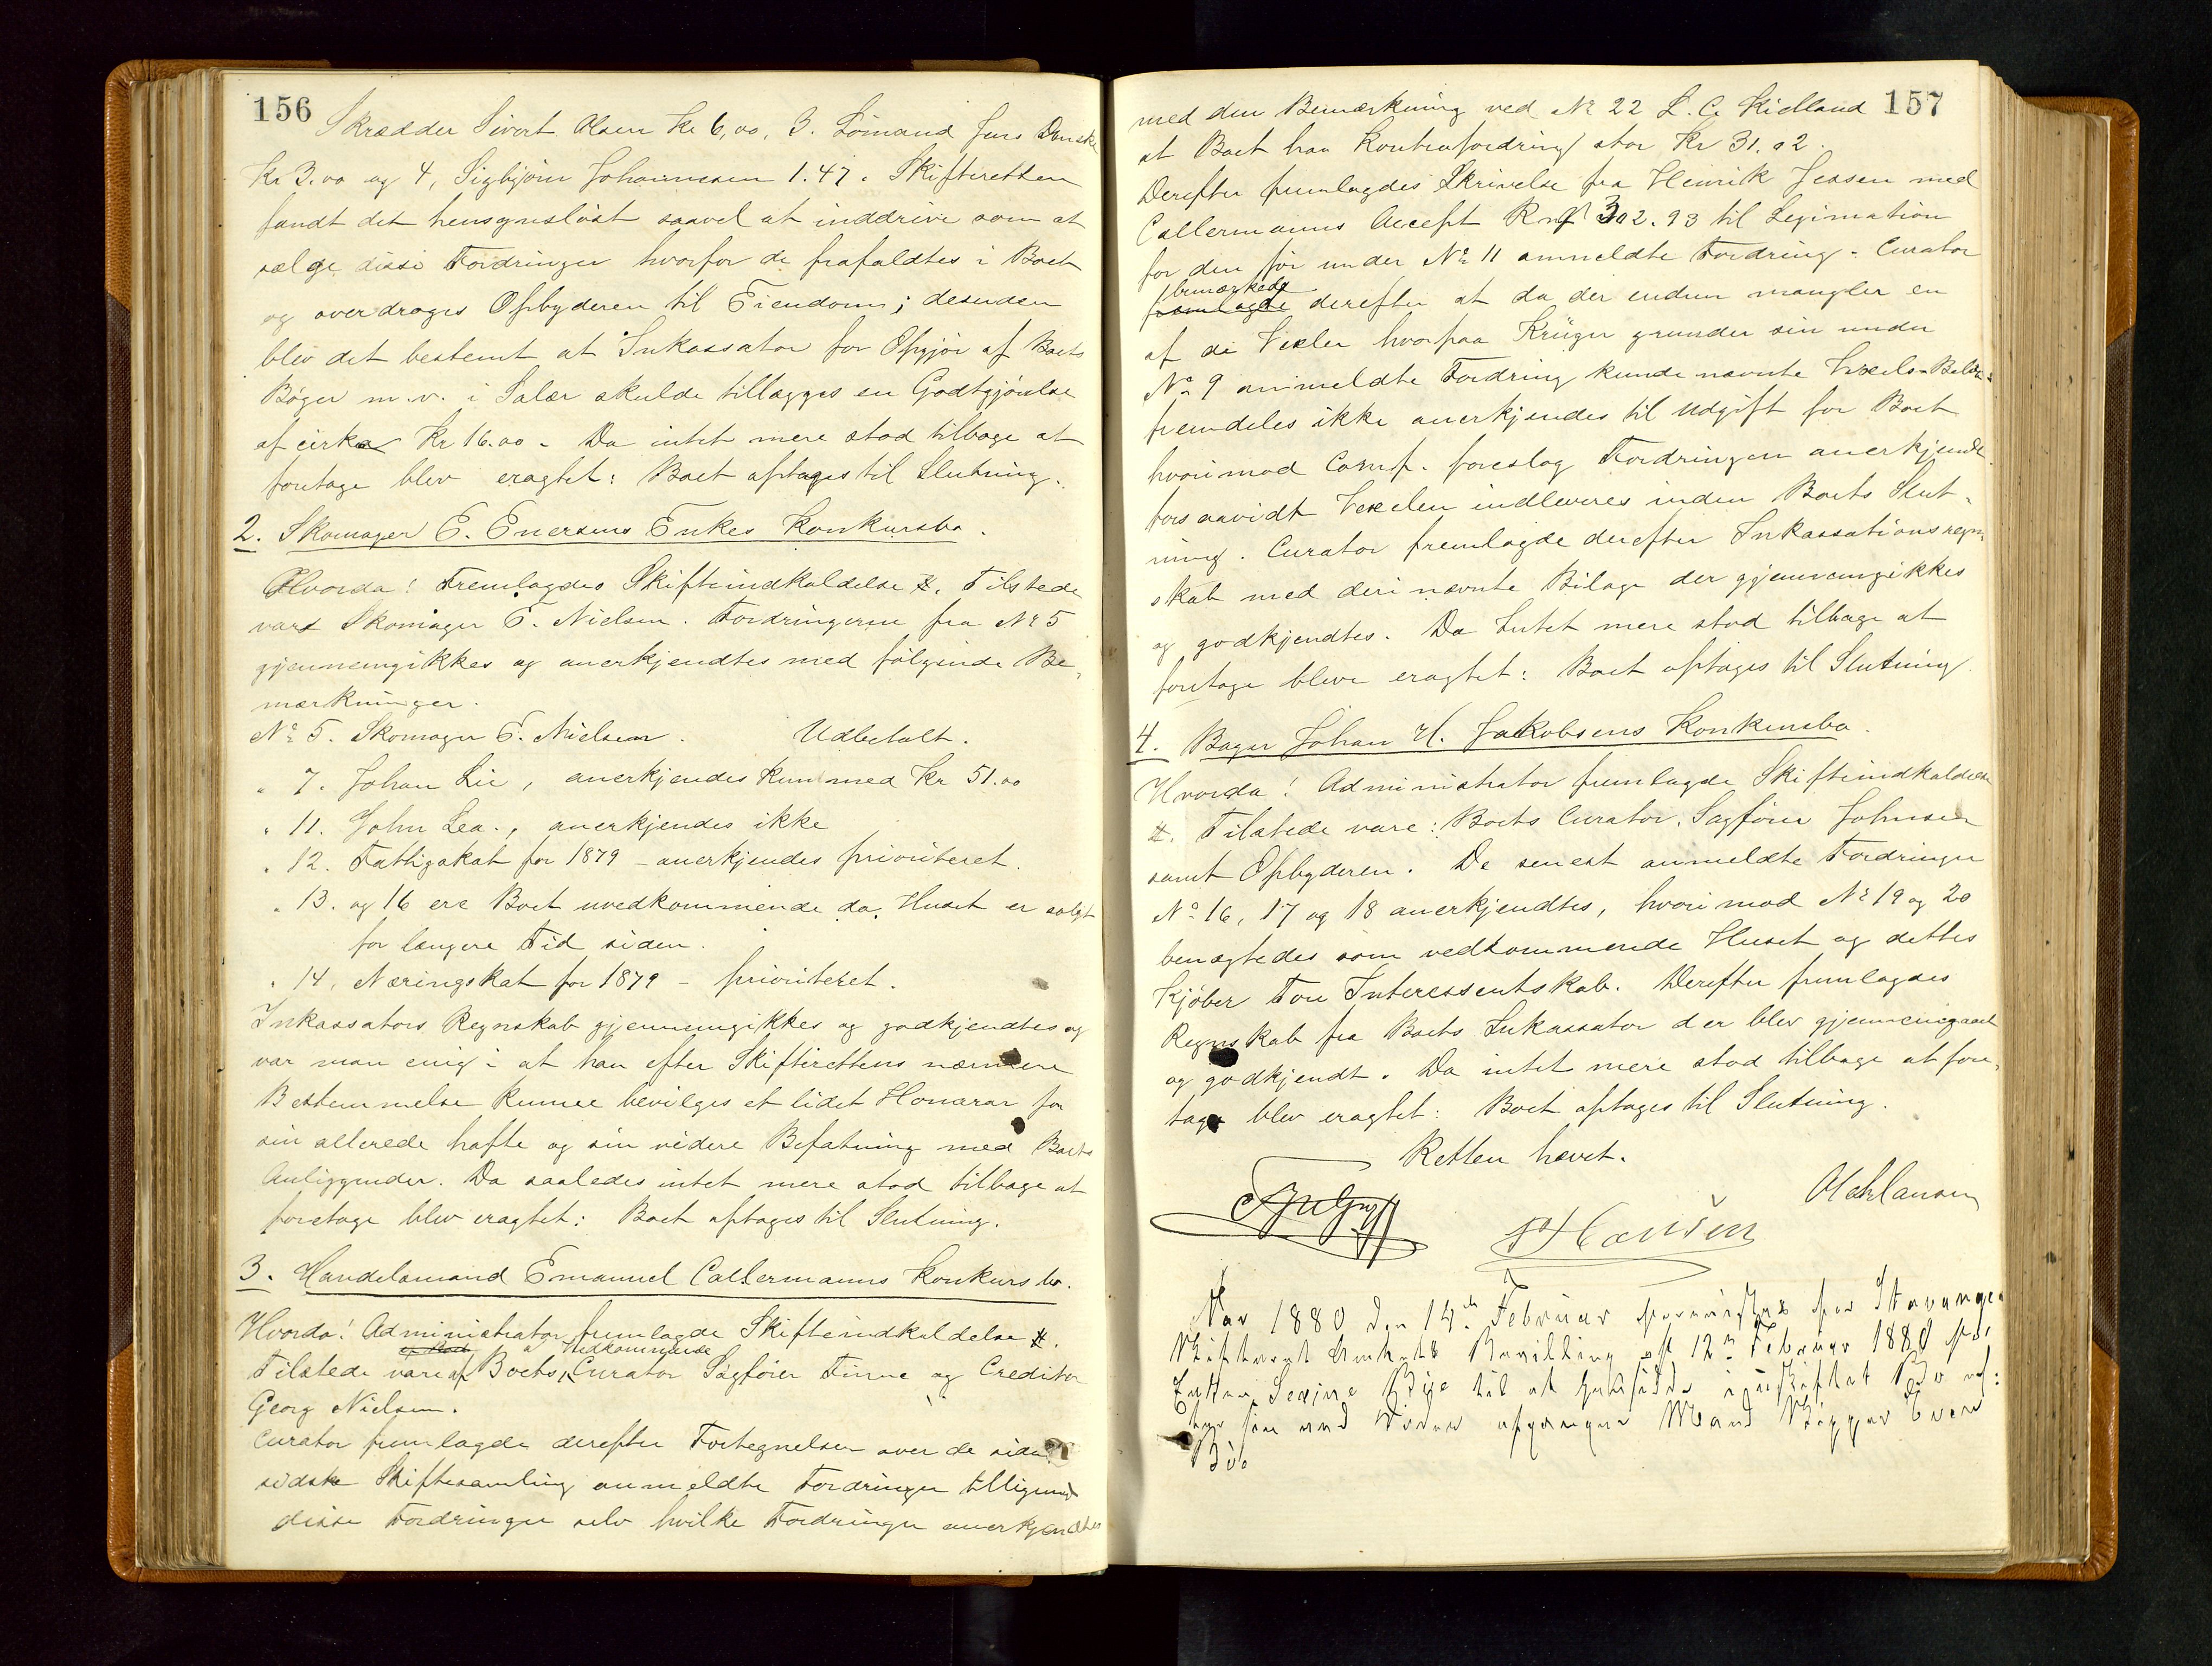 156
Skrædder Sivert Olsen Kr 6,00, 3. Sömand Jens Danske
Kr 3.00 og 4, Sigbjörn Johannesen 1.47. Skifteretten
fandt det hensynslöst saavel at inddrive som at
sælge disse Fordringer hvorfor de frafaldtes i Boet
og overdroges Opbyderen til Eiendom; desuden
blev det bestemt at Inkassator for Opgjör af Boets
Böger m.v. i Salær skulde tillægges en Godtgjörelse
af cirka Kr 16.00 - Da intet mere stod tilbage at
foretage blev eragtet: Boet optages til Slutning.
2. Skomager E. Enersens Enkes Konkursbo.
Hvorda! Fremlagdes Skifteindkaldelse #. Tilstede
var Skomager E. Nielsen. Fordringerne fra No 5
gjennemgikkes og anerkjendtes med fölgende Be-
mærkninger.
No 5. Skomager E. Nielsen. Udbetalt.
" 7. Johan Lie, anerkjendes kun med Kr 51.00
" 11. John Lea., anerkjendes ikke
" 12. Fattigskat for 1879 - anerkjendes prioriteret.
" 13. og 16 ere Boet uvedkommende da Huset er solgt
for længere Tid siden.
" 14, Næringskat for 1879 - prioriteret.
Inkassators Regnskab gjennemgikkes og godkjendtes og
var man enig i at han efter Skifterettens nærmere
Bestemmelse kunne bevilges et lidet Honorar for
sin allerede hafte og sin videre Befatning med Boets
Anliggender. Da saaledes intet mere stod tilbage at
foretage blev eragtet: Boet optages til Slutning.
3. Handelsmand Emanuel Callermanns Konkursbo.
Hvorda! Administrator fremlagde Skifteindkaldelse #.
Vedkommende
Tilstede vare af Boets Curator Sagförer Finne og Creditor
Georg Nielsen.
Curator fremlagde derefter Fortegnelsen over de siden
sidste Skiftesamling anmeldte Fordringer tilligemed
disse Fordringer selv hvilke Fordringer anerkjendtes
157
med den Bemærkning ved No 22 L. C. Kielland
at Boet har Kontrafordring stor Kr 31.02.
Derefter fremlagdes Skrivelse fra Henrik Jessen med
Callermanns Accept Rmf 302.93 til Legimation
for den för under No 11 anmeldte Fordring - Curator
bemærkede
fremlagde derefter at da der endnu mangler en
af de Vexler hvorpaa Krüger grunder sin under
No 9 anmeldte Fordring kunde nævnte Vexels-Belöb
fremdeles ikke anerkjendes til Udgift for Boet
hvorimod Comp. foreslog Fordringen anerkjendt
forsaavidt Vexelen indleveres inden Boets Slut-
ning. Curator fremlagde derefter Inkassationsregn-
skab med deri nævnte Bilage der gjennemgikkes
og godkjendtes. Da Intet mere stod tilbage at
foretage blev eragtet: Boet optages til Slutning.
4. Bager Johan H. Jakobsens Konkursbo.
Hvorda! Administrator fremlagde Skifteindkaldelse
#. Tilstede vare: Boets Curator, Sagförer Johnsen
samt Opbyderen. De senest anmeldte Fordringer
No 16, 17 og 18 anerkjendtes, hvorimod No 19 og 20
benægtedes som vedkommende Huset og dettes
Kjöber Tou Interessentskab. Derefter fremlagdes
Regnskab fra Boets Inkassator der blev gjennemgaaet
og godkjendt. Da intet mere stod tilbage at fore-
tage blev eragtet: Boet optages til Slutning.
Retten hævet.
Hansen
Aar 1880 den 14de Februar forevistes for Stavanger
Skifteret Amtets Bevilling af 12te Februar 1880 for
Enken Sexine Böe til at hensidde i uskiftet Bo ef-
ter sin ved Döden afgangne Mand
Böe